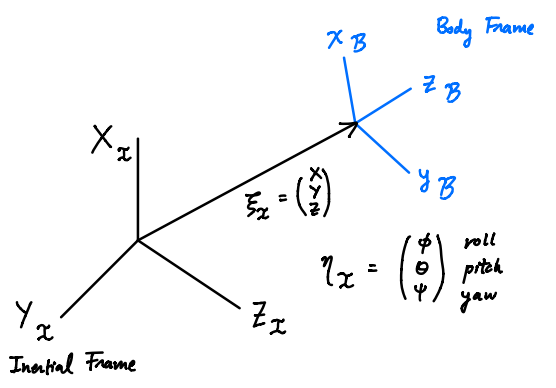 Body Frame
x_B
z_B
y_B
X_x
ξ_x = (X Y Z)
η_x = (φ θ ψ)
roll
pitch
yaw
Y_x
Z_x
Inertial Frame